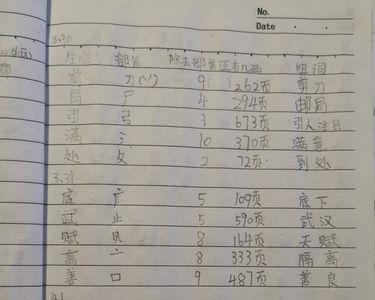 No.
Date
3.30
生字 部首 除去部首还有几画 组词
剪 刀(丷) 9 262页 剪刀
局 尸 4 294页 邮局
引 弓 1 673页 引人注目
满 氵 10 370页 满意
处 夂 2 72页 到处
3.31
底 广 5 109页 底下
武 止 5 590页 武汉
赋 贝 8 164页 天赋
离 亠 8 333页 隔离
善 口 9 487页 善良